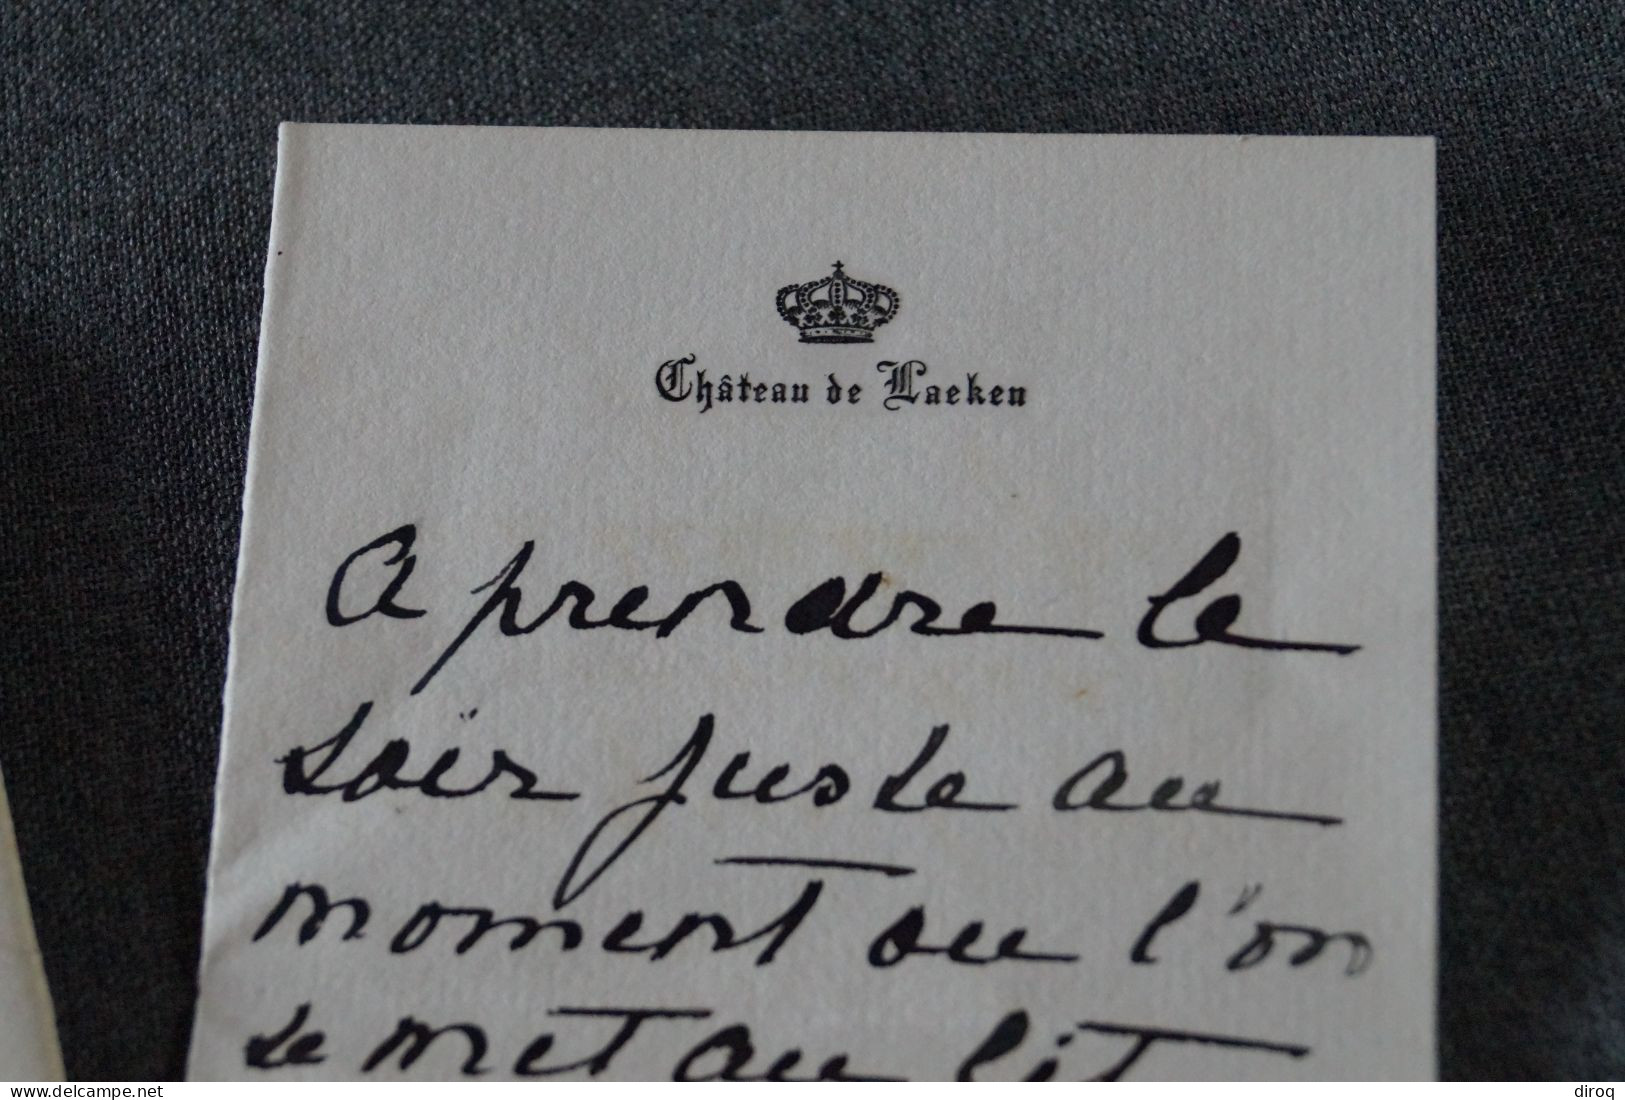 Château de Laeken
A prendre le
soir juste au
moment ou l'on
se met au lit
www.delcampe.net
diroq